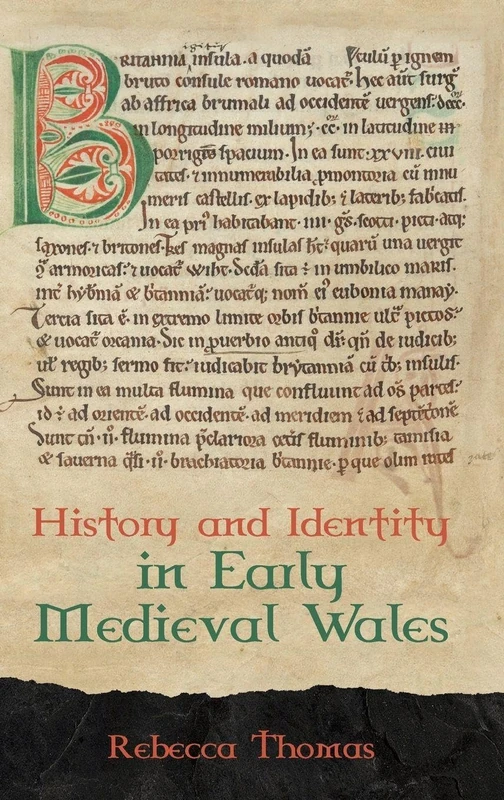 BRITANNIA igitur insula. a quodā
bruto consule romano uocat̄. hec aut̄ surḡ
ab affrica brumali ad occidentē uergens.
in longitudine milium; .cc. in latitudine
spacium. In ea sunt .xxviii. ciui
tates. ⁊ innumerabilia ꝓmontoria cū innu
meris castellis. ex lapidib; ⁊ laterib; fabⁱcatis.
In ea habitabant .iiii. scotti. picti. atq;
saxones. ⁊ britones. magnas insulas quarū una uergit
armoricas. ⁊ uocat̄ wiht. sita in umbilico maris.
int̄ & eubonia manay.
Tercia sita ē. in extremo limite orbis b̄tannie ult̄ pictos.
& uocat̄ orcania. Sic in ꝓuerbio antiq̊ de iudicib;
ul̄ regib; sermo fit. iudicabit brytanniā cū insulis.
Sunt in ea multa flumina que confluunt ad partes.
id ad orientē. ad occidentē. ad meridiem ⁊ ad
Sunt .ii. flumina p̄clariora flumīnib; tamisia
& sauerna .ii. brachia b̄tannie. ꝑ que olim rates
History and Identity
in Early
Medieval Wales
Rebecca Thomas